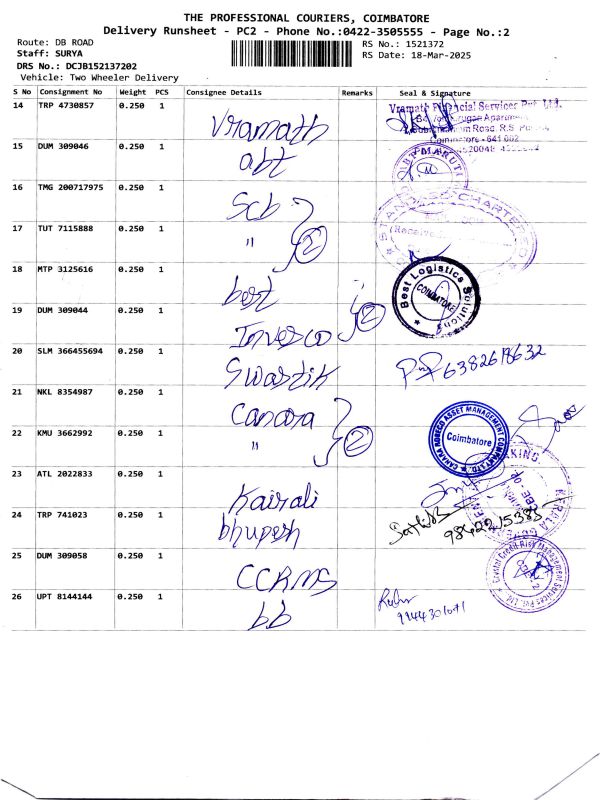 THE PROFESSIONAL COURIERS, COIMBATORE
Delivery Runsheet - PC2 - Phone No.:0422-3505555 - Page No.:2
Route: DB ROAD
RS No.: 1521372
Staff: SURYA
RS Date: 18-Mar-2025
DRS No.: DCJB152137202
Vehicle: Two Wheeler Delivery
S No Consignment No Weight PCS Consignee Details Remarks Seal & Signature
14 TRP 4730857 0.250 1 Vramath
15 DUM 309046 0.250 1 abt
ABT MARUTI
16 TMG 200717975 0.250 1 Scb
STANDARD CHARTERED
17 TUT 7115888 0.250 1 " 2
18 MTP 3125616 0.250 1 best
Best Logistics Solutions
COIMBATORE
19 DUM 309044 0.250 1 Invesco 2
20 SLM 366455694 0.250 1 Swastik
21 NKL 8354987 0.250 1 Canara
CANARA ROBECO ASSET MANAGEMENT COMPANY LTD.
Coimbatore
22 KMU 3662992 0.250 1 " 2
23 ATL 2022833 0.250 1 Kairali
24 TRP 741023 0.250 1 bhupesh
25 DUM 309058 0.250 1 CCRMS
Crystal Credit Risk Management Services Pvt. Ltd.
26 UPT 8144144 0.250 1 bb